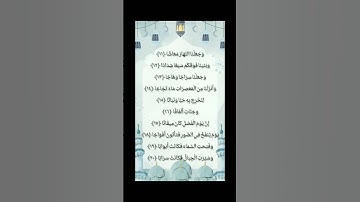 وَجَعَلْنَا النَّهَارَ مَعَاشًا ﴿١١﴾
وَبَنَيْنَا فَوْقَكُمْ سَبْعًا شِدَادًا ﴿١٢﴾
وَجَعَلْنَا سِرَاجًا وَهَّاجًا ﴿١٣﴾
وَأَنْزَلْنَا مِنَ الْمُعْصِرَاتِ مَاءً ثَجَّاجًا ﴿١٤﴾
لِنُخْرِجَ بِهِ حَبًّا وَنَبَاتًا ﴿١٥﴾
وَجَنَّاتٍ أَلْفَافًا ﴿١٦﴾
إِنَّ يَوْمَ الْفَصْلِ كَانَ مِيقَاتًا ﴿١٧﴾
يَوْمَ يُنْفَخُ فِي الصُّورِ فَتَأْتُونَ أَفْوَاجًا ﴿١٨﴾
وَفُتِحَتِ السَّمَاءُ فَكَانَتْ أَبْوَابًا ﴿١٩﴾
وَسُيِّرَتِ الْجِبَالُ فَكَانَتْ سَرَابًا ﴿٢٠﴾